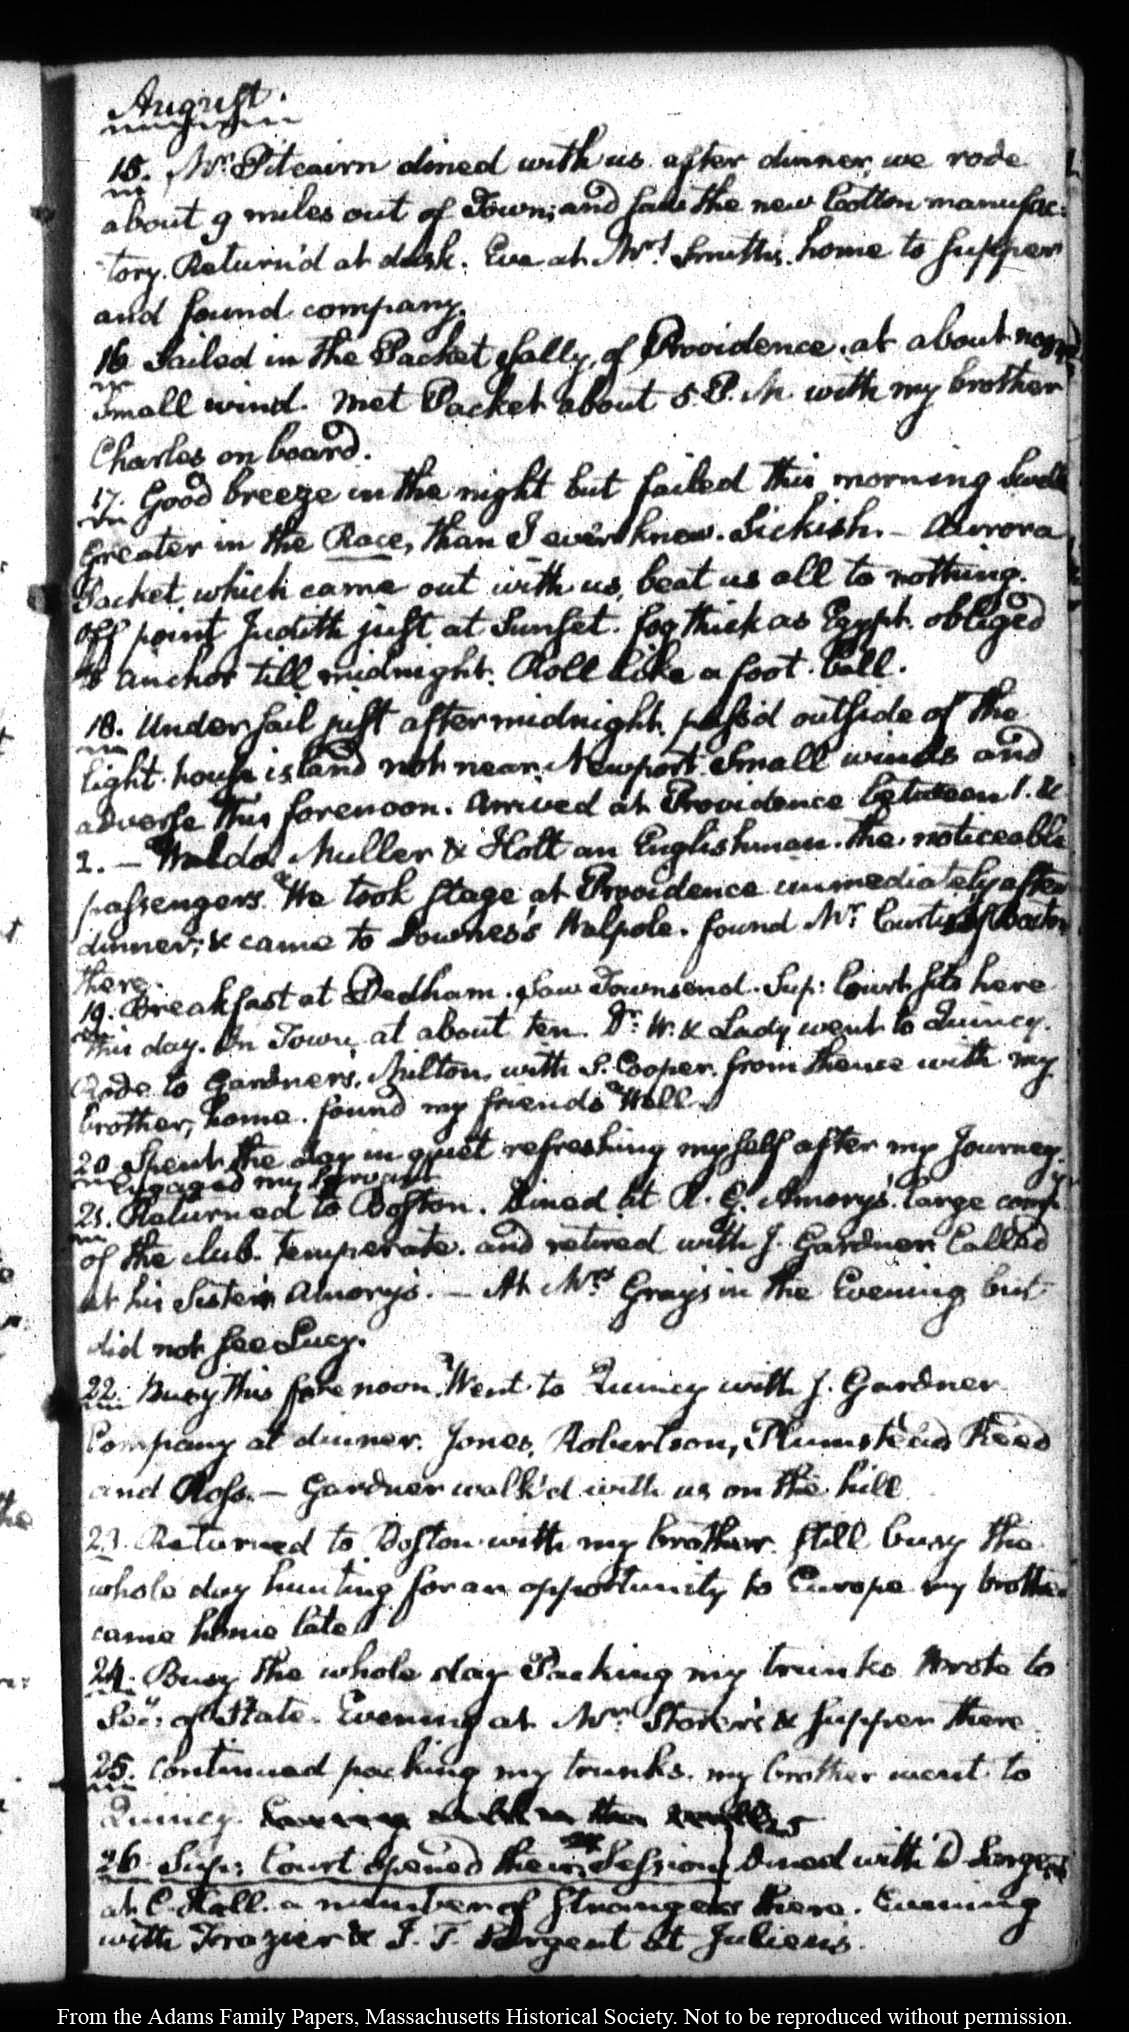 August.
15. Mr. Pitcairn dined with us after dinner, we rode
about 9 miles out of Town; and saw the new Cotton manufac:
tory. Return'd at dusk. Eve at Mrs. Smith's. home to supper
and found company.
16 Sailed in the Packet Sally, of Providence. at about noon
small wind. met Packet about 5 P.M. with my brother
Charles on board.
17. Good breeze in the night but failed this morning Swell
greater in the Race, than I ever knew. Sickish. — Aurora
Packet, which came out with us, beat us all to nothing.
Off point Judith just at Sunset. fog thick as Egypt. obliged
to anchor till midnight. Roll like a foot-ball.
18. Under sail just after midnight. pass'd outside of the
light-house island not near Newport. Small winds and
adverse this forenoon. Arrived at Providence between 1. &
2. — Waldo. Muller & Holt an Englishman. the noticeable
passengers. We took stage at Providence immediately after
dinner; & came to Downes's Walpole. found Mr. Curtis of Boston
there.
19. Breakfast at Dedham. Saw Townsend. Sup: Court sits here
this day. In Town at about ten. Dr. W. & Lady went to Quincy.
Rode to Gardner's, Milton, with S. Cooper. from thence with my
brother, home. found my friends Well.
20 Spent the day in quiet refreshing myself after my Journey.
Engaged my Servant
21. Returned to Boston. Dined at R. G. Amory's. large comp
of the club. temperate. and retired with J. Gardner Called
at his Sister Amory's. — At Mrs. Gray's in the Evening but
did not see Lucy.
22. Busy this forenoon. Went to Quincy with J. Gardner
Company at dinner. Jones, Robertson, Plumstead Reed
and Ross. — Gardner walk'd with us on the hill
23. Returned to Boston with my brother. still busy the
whole day hunting for an opportunity to Europe my brother
came home late
24. Busy the whole day Packing my trunks Wrote to
Secy: of State. Evening at Mr. Storer's & supper there.
25. Continued packing my trunks. my brother went to
Quincy.
26. Sup: Court opened their Session, Dined with D Sargent
at C. Hall. a number of strangers there. Evening
with Frazier & J. T. Sargent at Julien's.
From the Adams Family Papers, Massachusetts Historical Society. Not to be reproduced without permission.